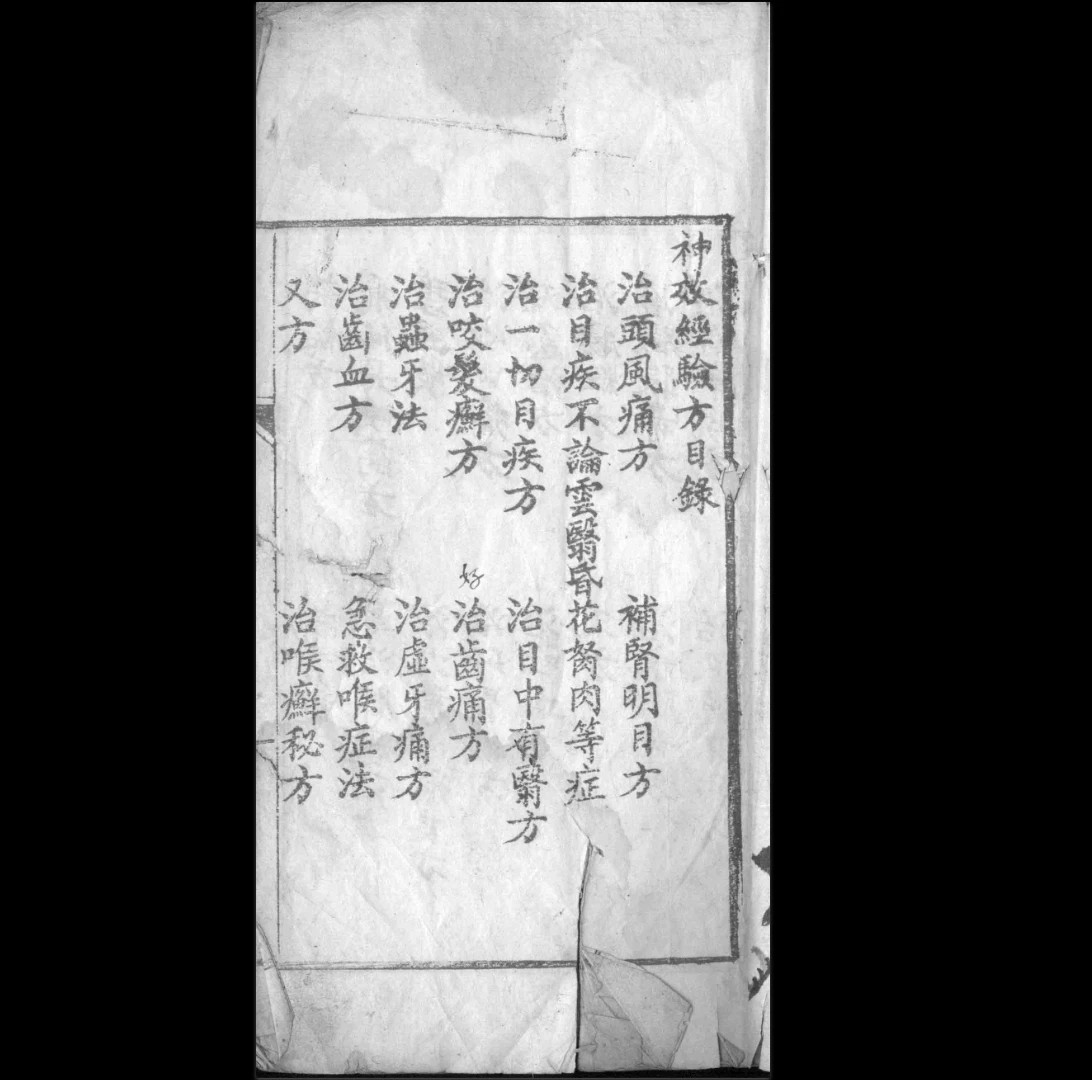 神效經驗方目錄
治頭風痛方　補腎明目方
治目疾不論雲翳昏花胬肉等症
治一切目疾方　治目中有翳方
治咬髮癬方　好　治齒痛方
治蟲牙法　治虛牙痛方
治齒血方　急救喉症法
又方　治喉癬秘方